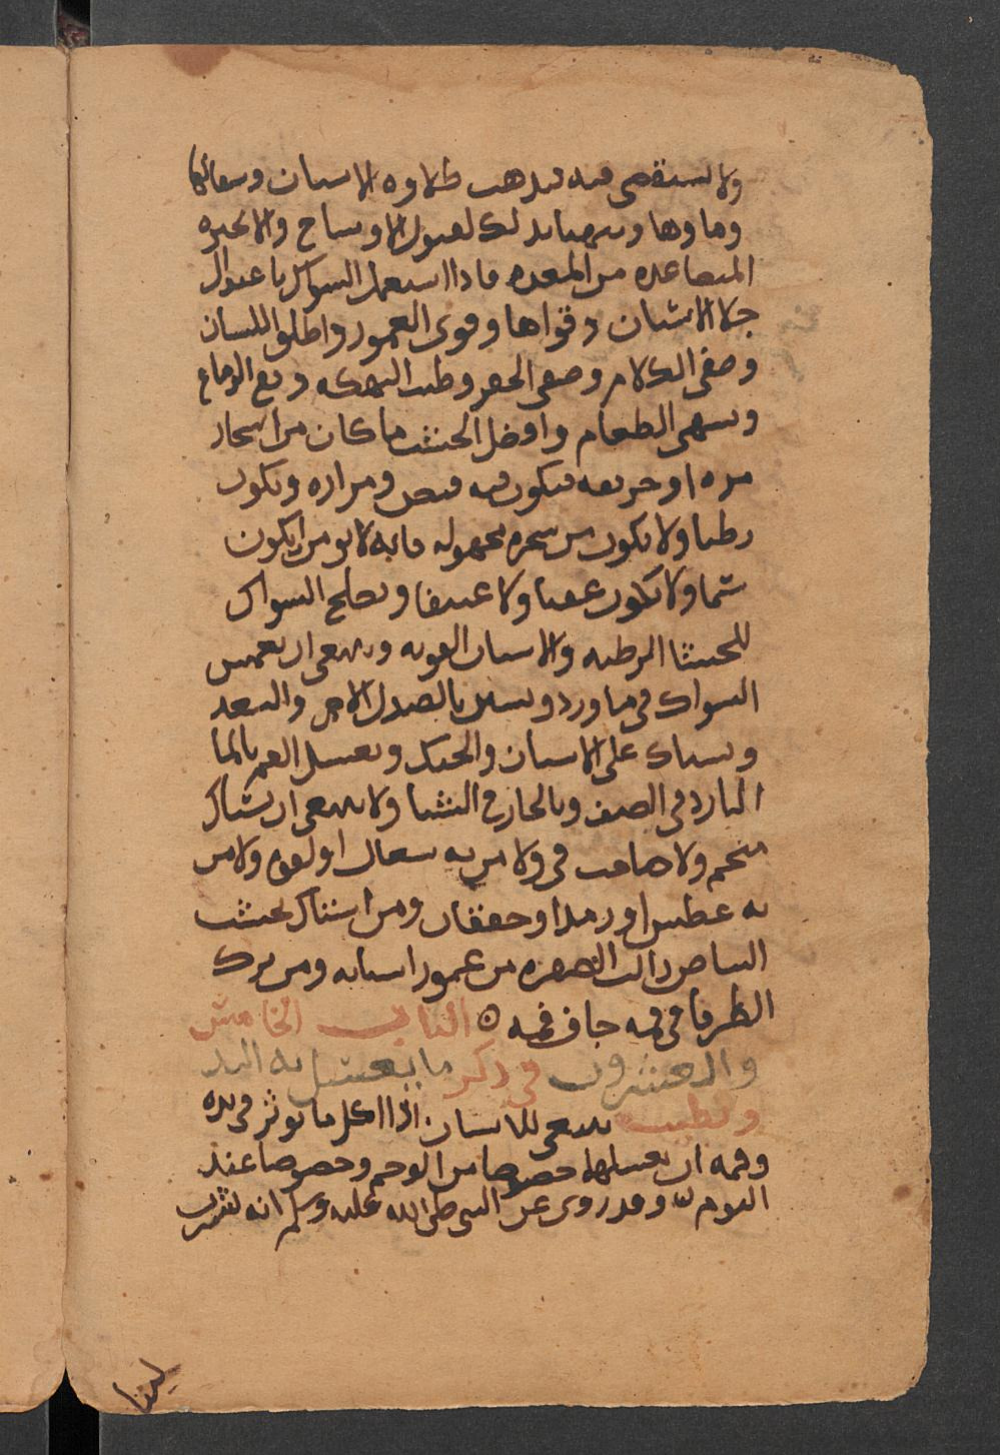 ولا يستقصى فيه فيذهب طلاوه الاسنان وصقالها
وماوها ويهيئا بذلك لقبول الاوساخ والابخره
المتصاعده من المعده فاذا استعمل السواك باعتدال
جلا الاسنان وقواها وقوى العمور واطلق اللسان
وصفى الكلام وصفى الحفر وطيب النهكه ونقى الدماغ
ويشهى الطعام وافضل الخشب ما كان من اشجار
مره او حريفه فيكون فيه قبض ومراره ويكون
رطبا ولا يكون من شجره مجهوله فانه لا يومن ان يكون
سما ولا يكون عفنا ولا عتيقا ويصلح السواك
للخشا الرطبه والاسنان القويه وينبغى ان يغمس
السواك فى ماورد ويستن بالصندل الاحمر والسعد
ويستاك على الاسنان والحنك ويغسل الفم بالما
البارد فى الصيف وبالحار فى الشتا ولا ينبغى ان يستاك
متخم ولا صاحب قى ولا من به سعال او لقوه ولا من
به عطش او رمد او خفقان ومن استاك بخشب
البياض زالت الصفره من عمور اسنانه ومن ترك
الطرفا فى فيه جاف فمه ٥ الباب الخامس
والعشرون فى ذكر ما يغسل به اليد
وتطيب ينبغى للانسان اذا اكل ما يوثر فى يده
وفمه ان يغسلهما خصوصا من الوخم وخصوصا عند
النوم وقد روى عن النبى صلى الله عليه وسلم انه شرب
لبنا